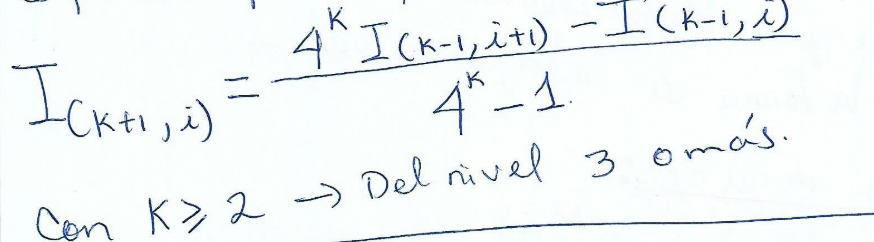 I(k+1, i) = (4^k I(k-1, i+1) - I(k-1, i)) / (4^k - 1)
Con K ≥ 2 → Del nivel 3 o más.